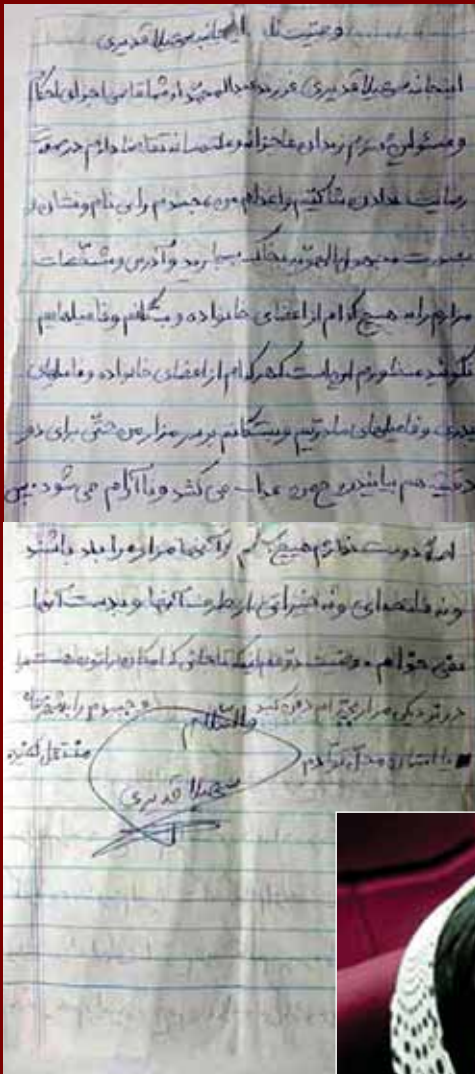 وصیت نامه اینجانب سهیلا قدیری
اینجانب سهیلا قدیری فرزند از شما قاضی اجرای احکام
و مسئولین محترم زندان عاجزانه و ملتمسانه تقاضا دارم در صورت
رضایت ندادن شاکیم و اعدام من جسدم را بی نام و نشان و
بصورت مجهول الهویه بخاک بسپارید و آدرس و مشخصات
مزارم را به هیچ کدام از اعضای خانواده و بستگانم و فامیلهایم
نگوئید منظورم این است که هر کدام از اعضای خانواده و فامیلهای
پدری و فامیلهای مادریم و بستگانم بر سر مزار من حتی برای
دقیقه هم بیایند روح من عذاب می کشد و نا آرام می شود. من
اصلاً دوست ندارم هیچ از آنها مزارم را بلد باشند
و نه فاتحه ای و نه خیراتی از طرف آنها و بدست آنها
نمی خواهم. وصیت دوم اینکه تا جائی که امکان براتون هست مرا
در نزدیکی مزار بچه ام دفن کنید و جسدم را به
یا استان محل تولدم منتقل نکنید
والسلام
سهیلا قدیری